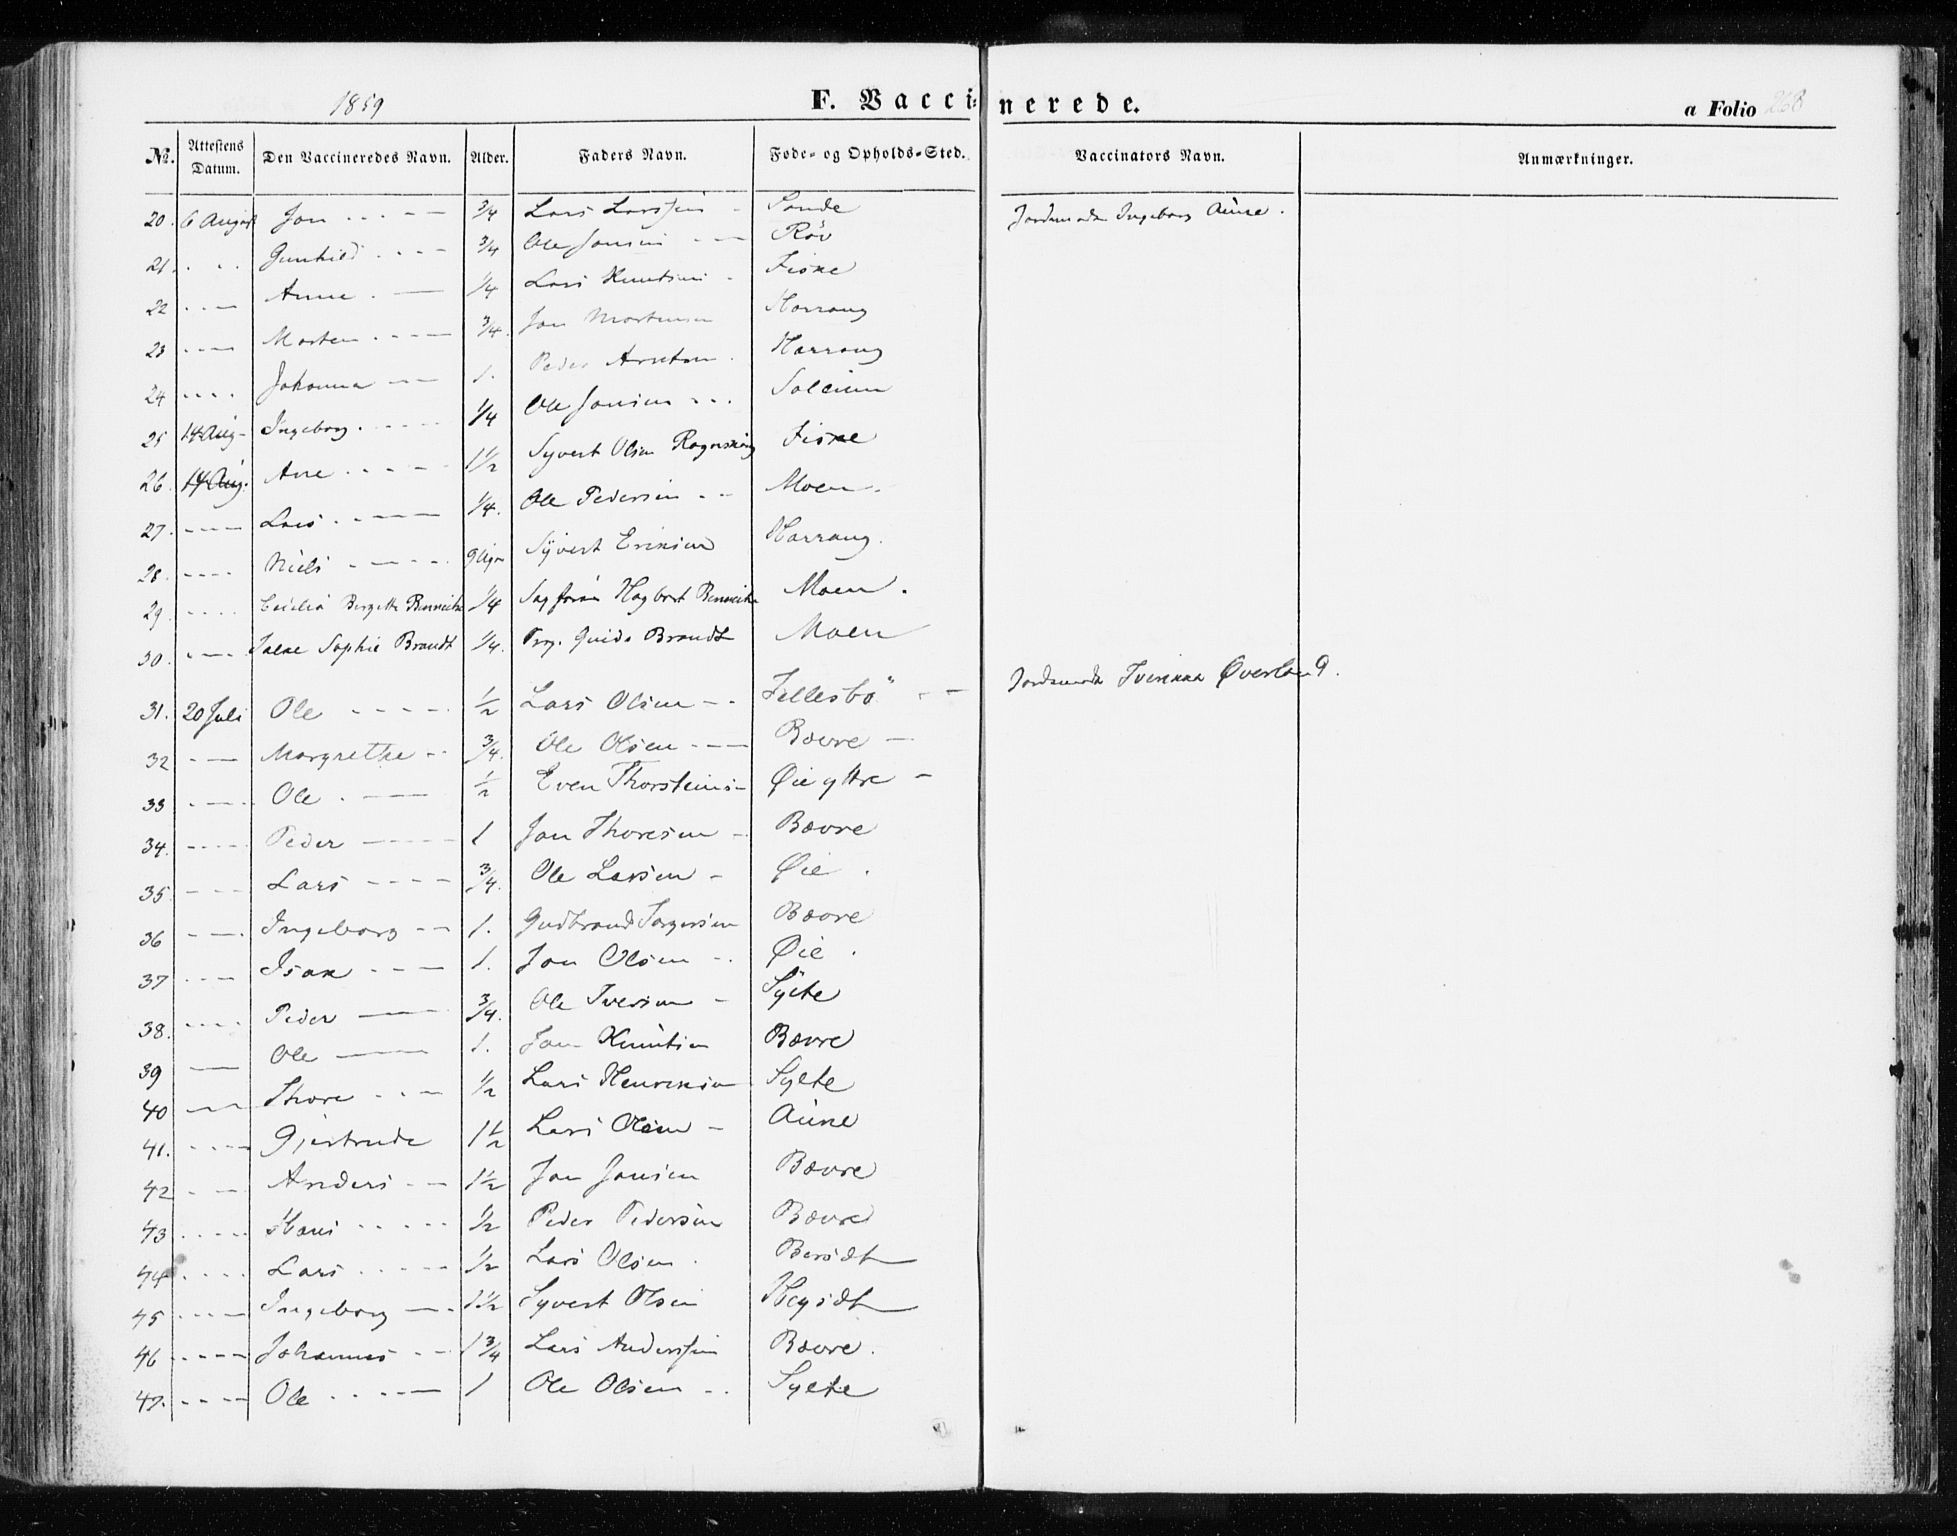 1859 F. Vaccinerede. a Folio 268
№. Attestens Datum. Den Vaccineredes Navn. Alder. Faders Navn. Føde- og Opholds-Sted. Vaccinators Navn. Anmærkninger.
20. 6 August Jon - - - - 3/4 Lars Larssen - Sande Jordemoder Ingeborg Aune.
21. - - - Gunhild - - - 3/4 Ole Jonsen - - Røv
22 - - - Anne - - 1/4 Lars Knutsen - Fiske
23 - - - Morten - - - 3/4. Jon Mortensen Harrang
24 - - - Johanna - - 1. Peder Harrang
25 14 Aug - Ingeborg - - - 1/4 Ole Jonsen - - -
26. 14 Aug. Ane - - - - 1 1/2 Syvert Olsen Fiske
27. - - - Lars - - - 1/4. Ole Pedersen - - Moen.
28. - - - Niels - - - - Syvert Eriksen Harrang.
29 - - - 1/4 Hagbart Moen.
30. - - - Sophie Brandt 1/4. Guido Brandt Moen
31. 20 Juli Ole - - - - 1/2 Lars Olsen - - - - Jordemoder Øverland.
32 - - Margrethe - - 3/4. Ole Olsen - - - Bævre -
33 - - - Ole - - - 1/2 Even Thorsteins - Øie yttre -
34. - - - Peder - - - 1 Jon Thoresen - Bævre
35 - - - Lars - - - - 3/4. Ole Larsen - Øie.
36 - - - Ingeborg - - 1. Gudbrand Bævre
37 - - - Isak - - - 1. Jon Olsen - Øie.
38. - - - Peder - - 3/4. Ole Iversen - Sylte
39 - - Ole - - 1. Jon Knutsen Bævre
40 - - Thore - - - 1/2 Lars Henriksen Sylte
41. - - - Gjertrude 1 1/2 Lars Olsen - Aune
42 - - - Anders - - 1 1/2 Jon Jonsen Bævre
43 - - - - Hans - - - - 1/2 Peder Pedersen Bævre
44 - - - - Lars - - - - 1/2 Lars Olsen.
45 - - - - Ingeborg - - 1 1/2 Syvert Olsen
46 - - - - Johannes - - 1 3/4 Lars Anderssen Bævre.
47. - - - - Ole - - - - 1 Ole Olsen - - Sylte